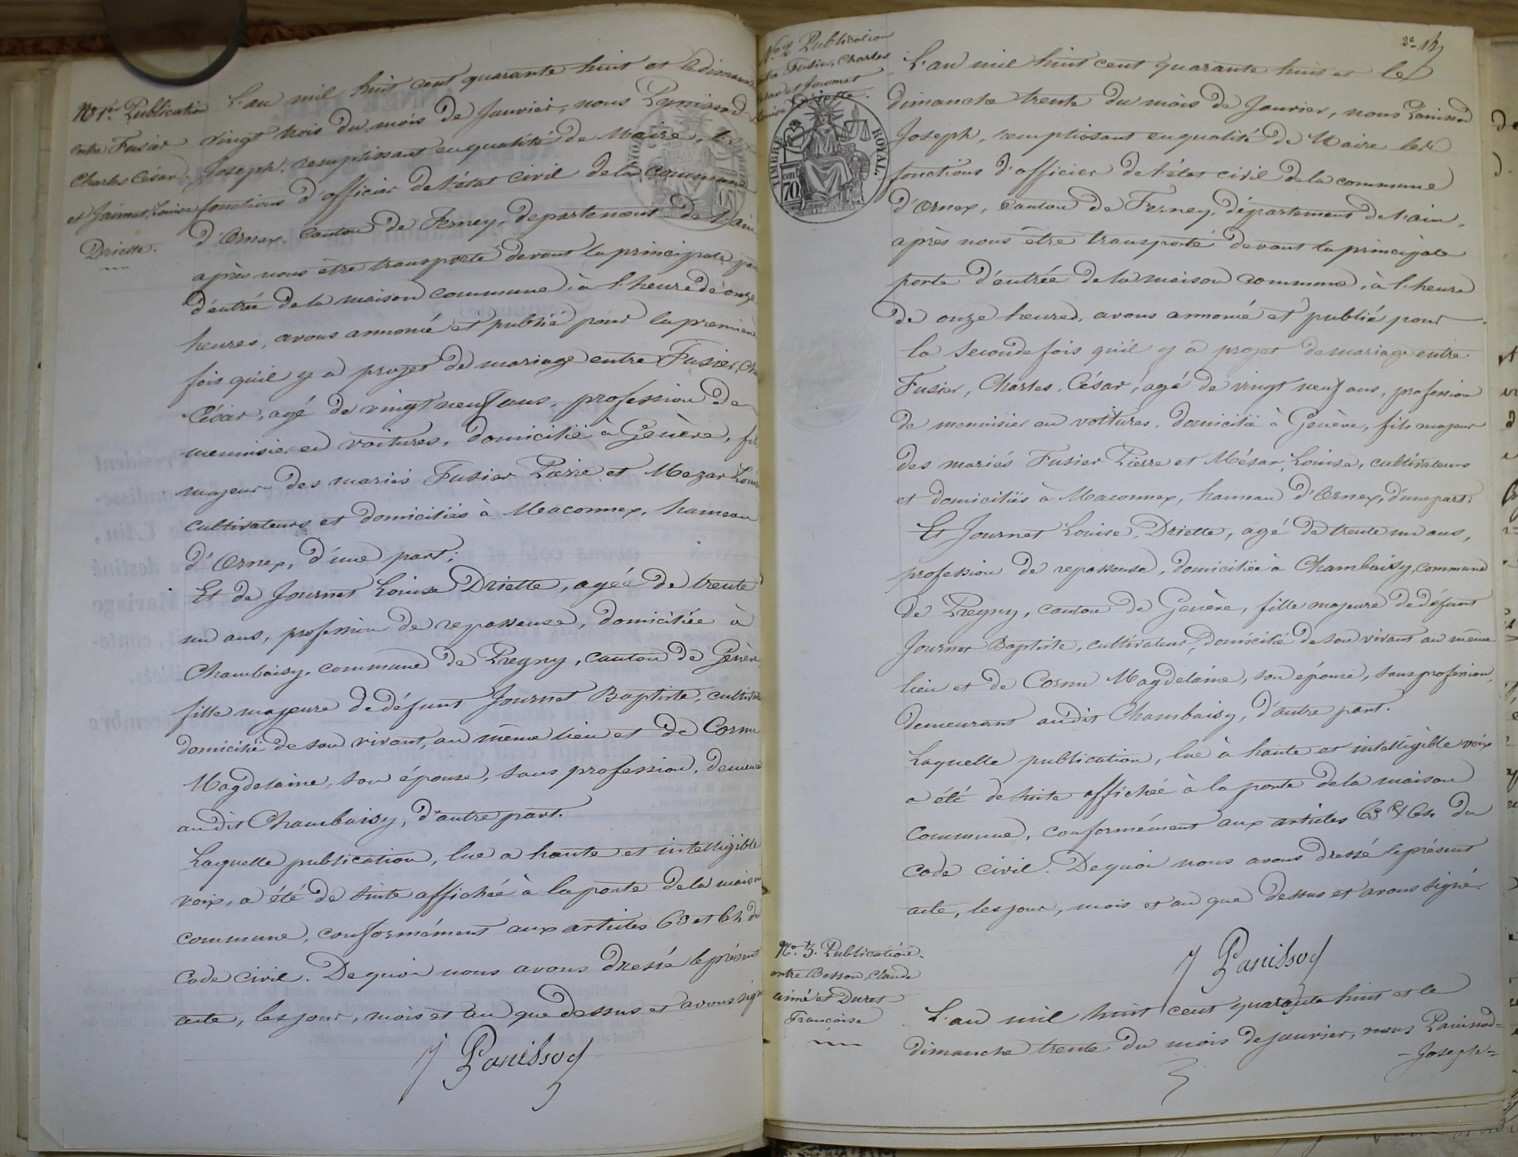 No 1er Publication
entre Fusier
Charles César.
et Journet, Louise
Driette.
L'an mil huit cent quarante huit et le dimanche
vingt trois du mois de Janvier, nous Panissod
Joseph, remplissant en qualité de Maire, les
fonctions d'officier de l'état civil de la commune
d'Ornex, canton de Ferney, département de l'ain
après nous être transporté devant la principale
d'entrée de la maison commune, à l'heure de onze
heures, avons annoncé et publié pour la première
fois qu'il y a projet de mariage entre Fusier, Ch
César, agé de vingt neuf ans, profession de
menuisier en voitures, domicilié à Genève, fils
majeur des mariés Fusier Pierre et Mezar Louise
cultivateurs et domiciliés à Maconnex, hameau
d'Ornex, d'une part;
Et de Journet Louise Driette, agée de trente
un ans, profession de repasseuse, domiciliée à
Chambaisy, commune de Pregny, canton de Genève
fille majeure de défunt Journet Baptiste, cultiva
domicilié de son vivant, au même lieu et de Cornu
Magdelaine, son épouse, sans profession, demeura
au dit Chambaisy, d'autre part.
Laquelle publication, lue a haute et intelligible
voix, a été de suite affichée à la porte de la maison
commune, conformément aux articles 63 et 64 du
code civil. De quoi nous avons dressé le présent
acte, les jour, mois et an que dessus et avons signé
J Panissod
No 2 Publication
entre Fusier, Charles
César et Journet
Louise Driette.
TIMBRE ROYAL.
70
2e 14
L'an mil huit cent quarante huit et le
dimanche trente du mois de Janvier, nous Panissod
Joseph, remplissant en qualité de Maire les
fonctions d'officier de l'état civil de la commune
d'Ornex, canton de Ferney, département de l'ain,
après nous être transporté devant la principale
porte d'entrée de la maison commune, à l'heure
de onze heures, avons annoncé et publié pour
la seconde fois qu'il y a projet de mariage entre
Fusier, Charles, César, agé de vingt neuf ans, profession
de menuisier en voitures, domicilié à Genève, fils majeur
des mariés Fusier Pierre et Mésar, Louise, cultivateurs
et domiciliés à Maconnex, hameau d'Ornex, d'une part.
Et Journet Louise, Driette, agé de trente un ans,
profession de repasseuse, domiciliée à Chambaisy, commune
de Pregny, canton de Genève, fille majeure de défunt
Journet Baptiste, cultivateur, domicilié de son vivant au même
lieu et de Cornu Magdelaine, son épouse, sans profession,
demeurant au dit Chambaisy, d'autre part.
Laquelle publication, lue à haute et intelligible voix
a été de suite affichée à la porte de la maison
commune, conformément aux articles 63 & 64 du
code civil. De quoi nous avons dressé le présent
acte, les jour, mois et an que dessus et avons signé.
J Panissod
No 3. Publication.
entre Bosson, Claude
aimé et Duret
Françoise
L'an mil huit cent quarante huit et le
dimanche trente du mois de janvier, nous Panissod=
-Joseph=